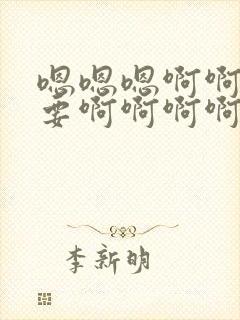 嗯嗯嗯啊啊
要啊啊啊啊
李新明